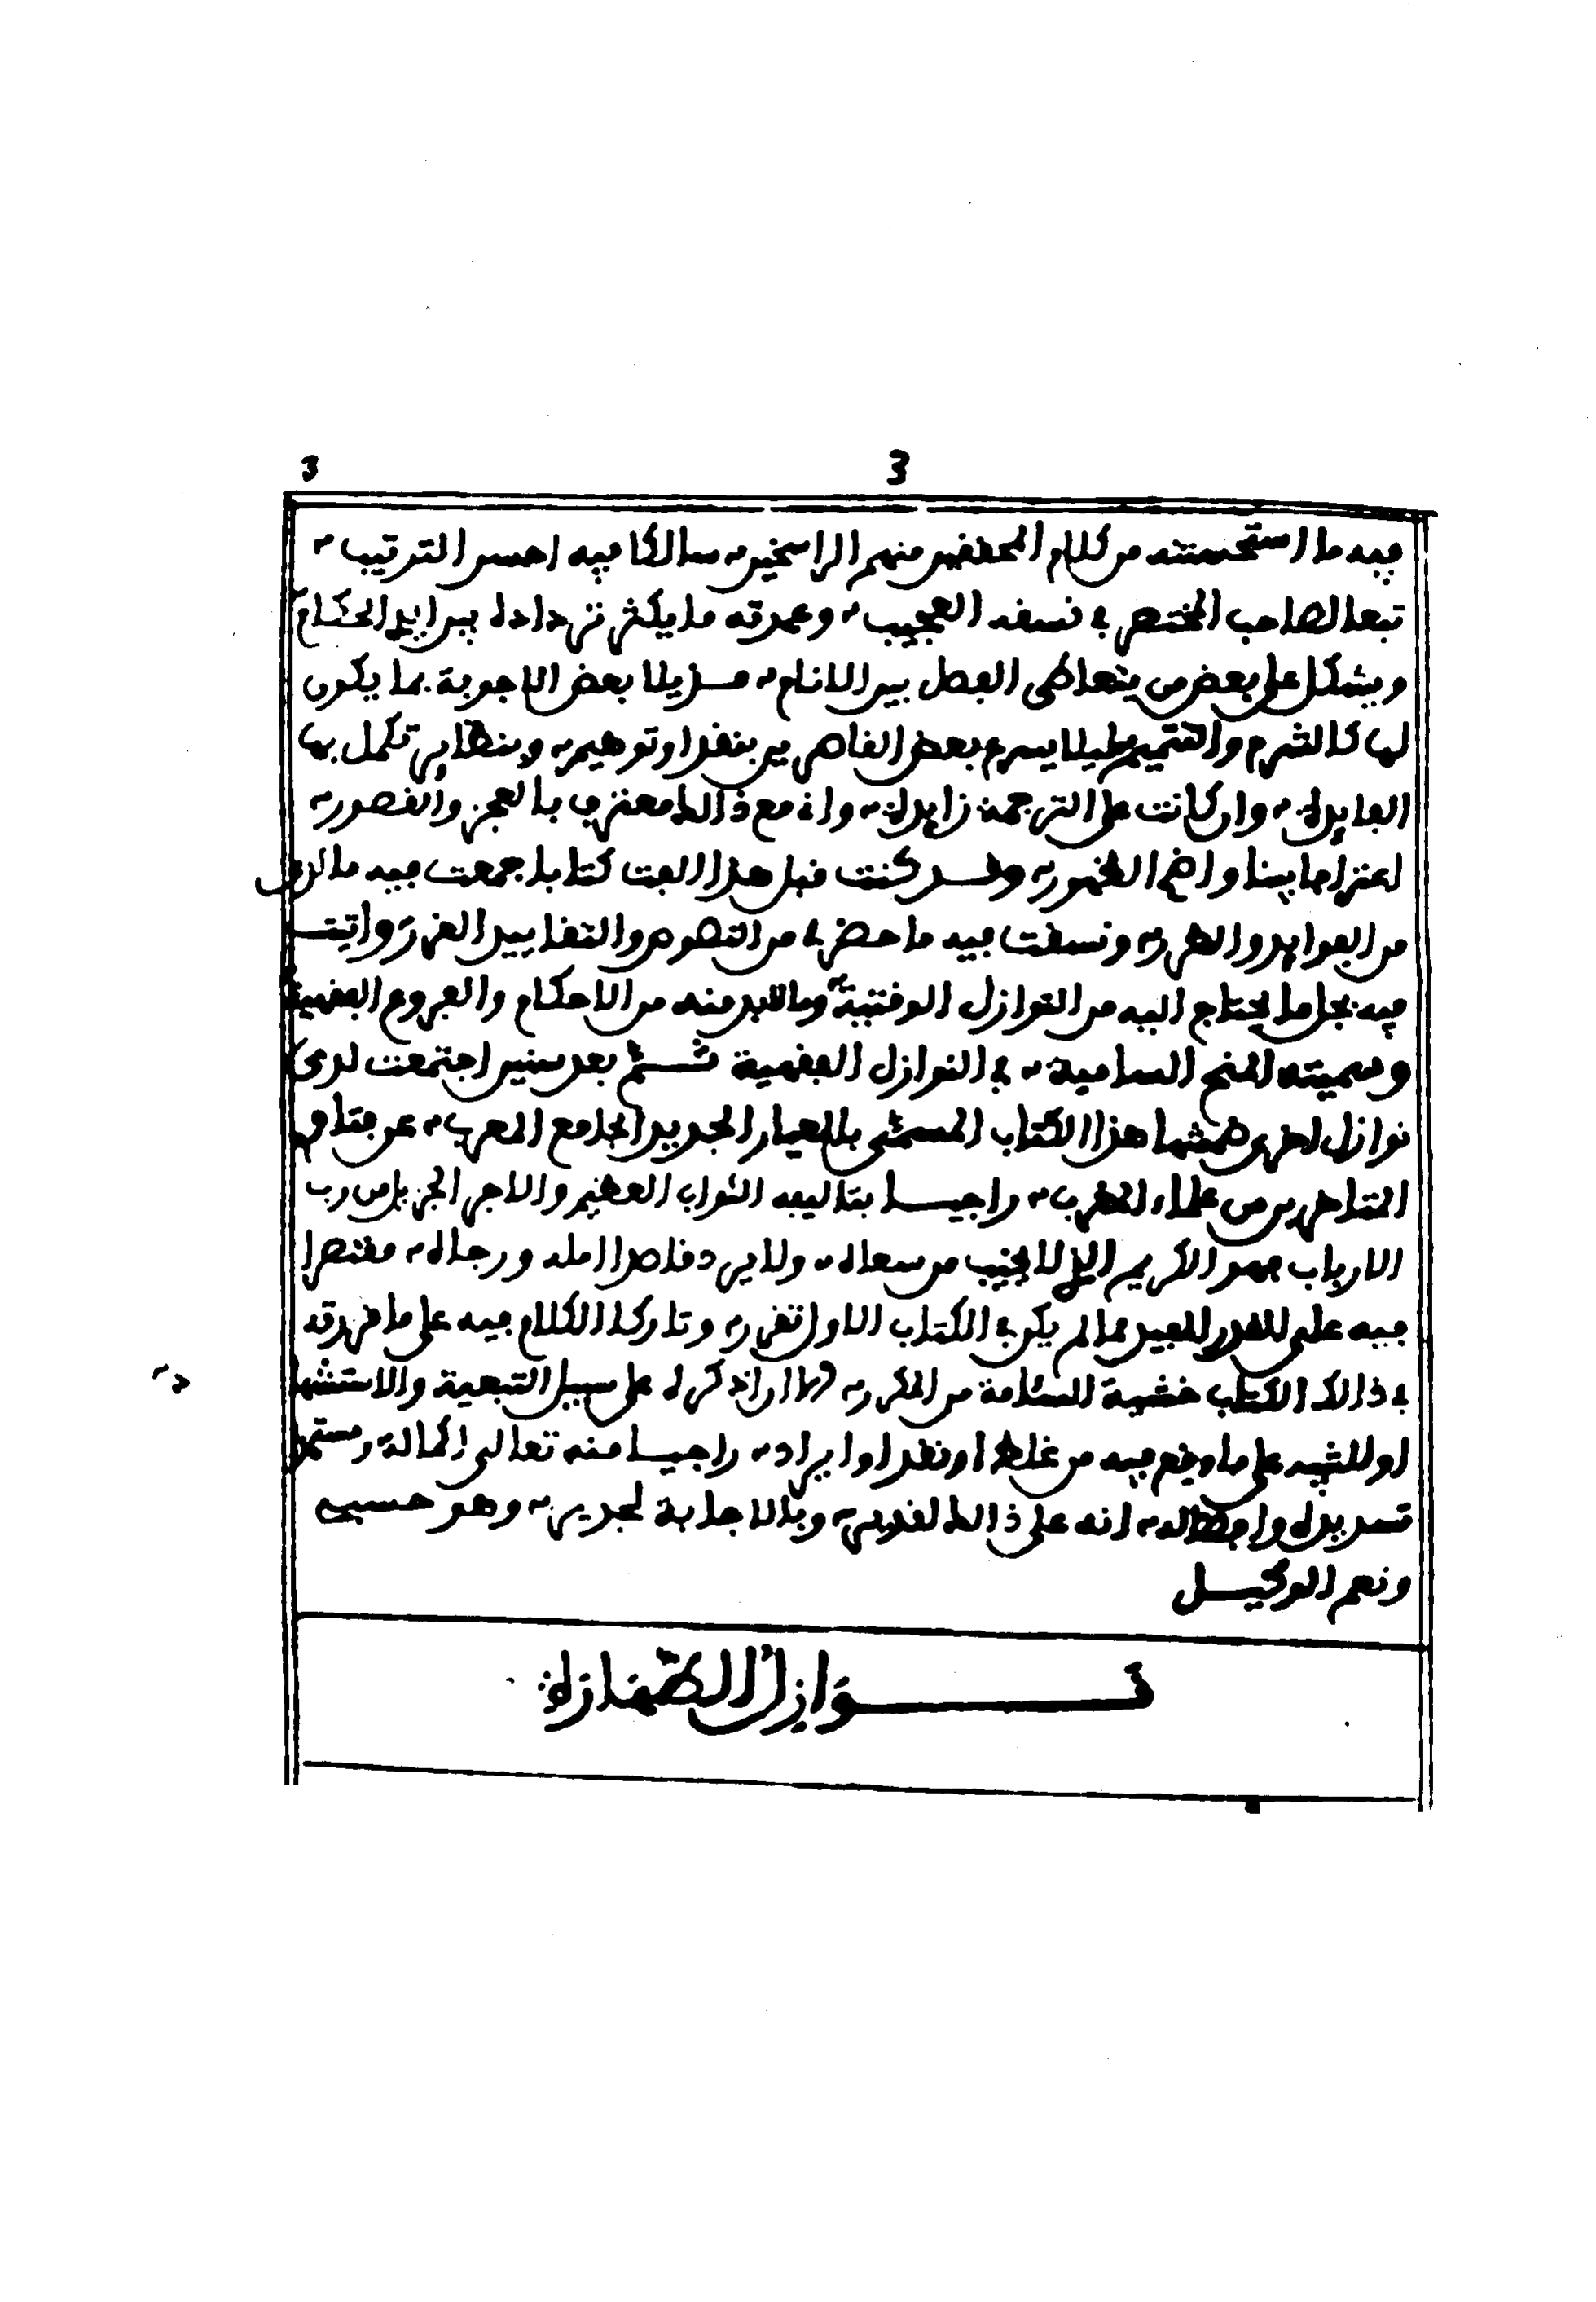 3
3
فيه ما استحسنته من كلام المحققين منهم الراسخين سالكا فيه احسن الترتيب
تبعا لصاحب المختصر في نسقه العجيب وعمدته ما يكثر تردادا بين ايدي الحكام
ويشكل على بعض من يتعاطى الفصل بين الانام مذيلا بعض الاجوبة بما يكون
لها كالشرح والتتميم ليلا يسرع بعض القاصرين بنقد او توهيم وبنظاير تكمل بها
الفايدة وان كانت على الترجمة زايدة واني مع ذالك معترف بالعجز والقصور
اعترافا بينا واضح الظهور وقد كنت قبل هذا الفت كتابا جمعت فيه ما لذ
من الفوايد والطرر ونسقت فيه ما حضرني من النصوص والتقاييد الغرر واتيت
فيه بجل ما يحتاج اليه من النوازل الوقتية وما لابد منه من الاحكام والفروع الفقهية
وسميته المنح السامية في النوازل الفقهية ثم بعد سنين اجتمعت لدي
نوازل اخرى ضمنتها هذا الكتاب المسمى بالمعيار الجديد الجامع المعرب عن فتاوي
المتاخرين من علماء المغرب راجيا بتاليفه الثواب العظيم والاجر الجزيل من رب
الارباب فهو الكريم الذي لا يخيب من سعاله ولا يرد قاصدا امله ورجاله مقتصرا
فيه على القدر المفيد مما لم يكن في الكتاب الاول تقرر وتاركا الكلام فيه على ما قررته
في ذالك الكتاب خشية السئامة من المكرر الا ان اذكره على سبيل التبعية والاستشها
د
او للتنبيه على ما وقع فيه من غلط او نقد او ايراد راجيا منه تعالى اكماله ومستمرا
تسديده وافضاله انه على ذالك لقدير وبالاجابة لجدير وهو حسبي
ونعم الوكيل
نوازل الطهارة